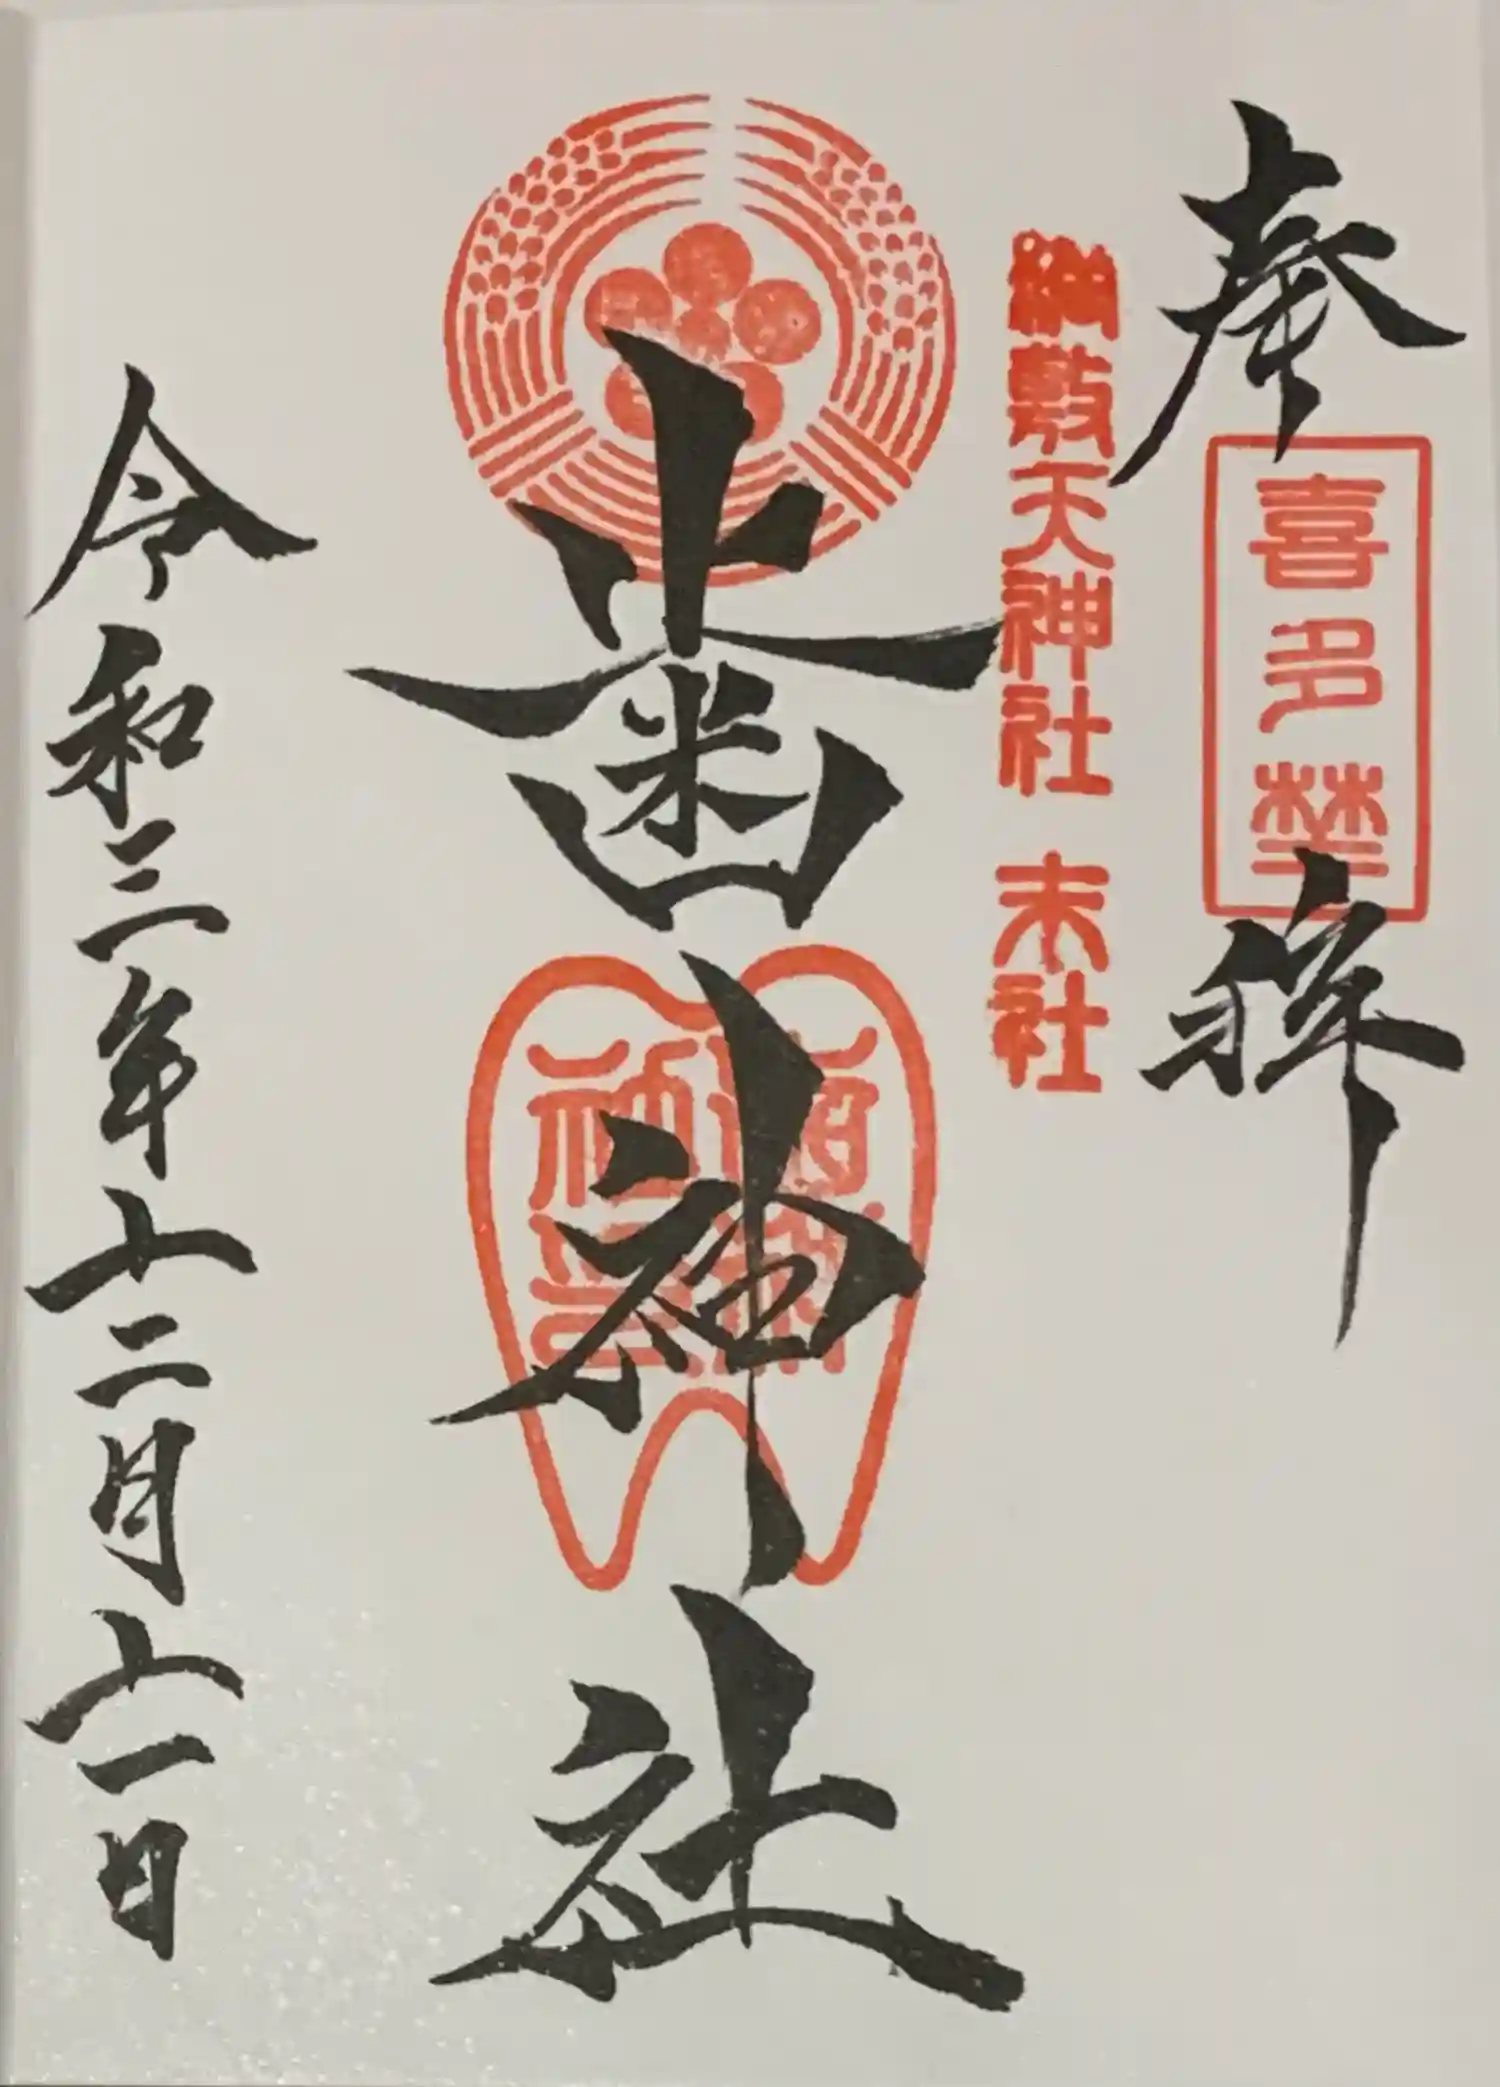 奉拝
喜多埜
綱敷天神社 末社
歯神社
歯神社印
令和三年十二月十一日